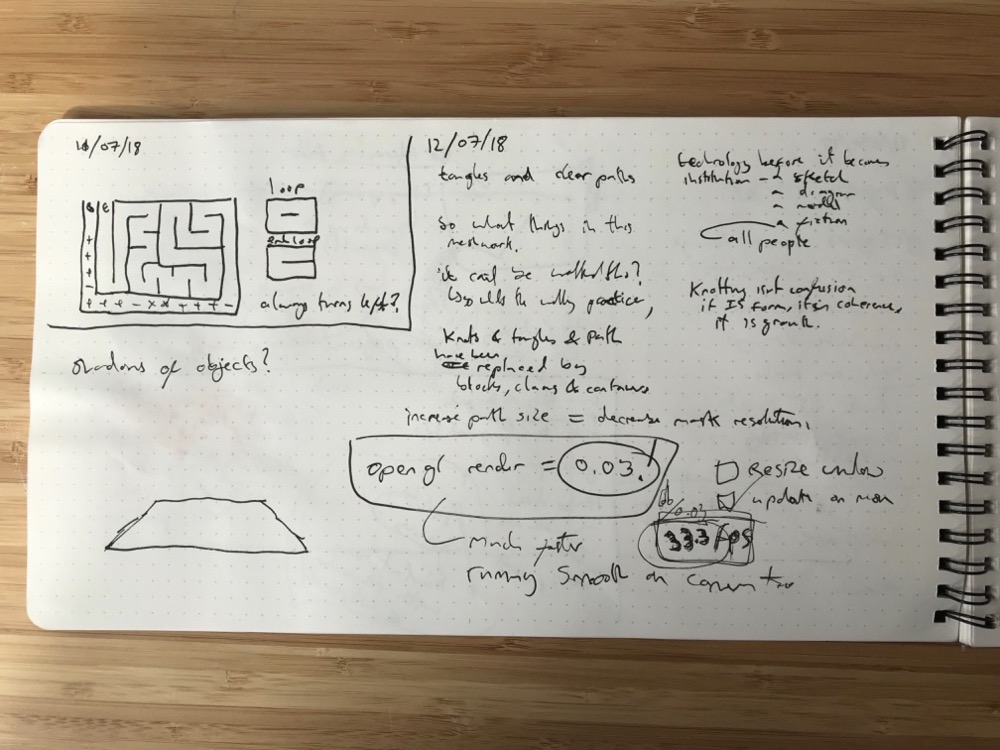 11/07/18
loop
always turns left?
shadows of objects?
12/07/18
tangles and clear paths
so what things in this
meshwork.
Knots & tangles & path
have been
replaced by
blocks, chains & containers
technology before it becomes
institution - a sketch
a diagram
a model
a fiction
all people
Knotting isn't confusion
it IS form, it is coherence,
it is growth.
increase path size = decrease mark resolution.
open gl render = 0.03!
much faster
running smooth on
Resize window
update on
0.03
33.3 fps